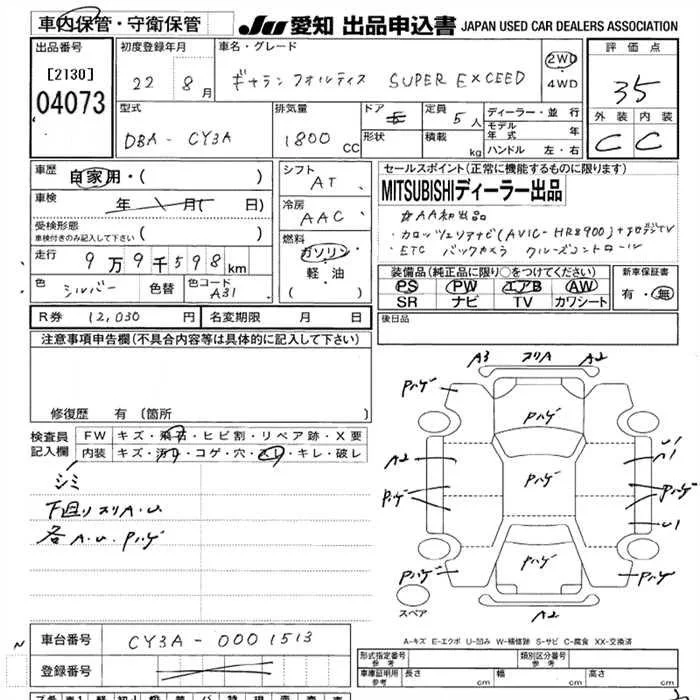 車内保管・守衛保管
JU 愛知 出品申込書 JAPAN USED CAR DEALERS ASSOCIATION
出品番号
[2130]
04073
初度登録年月
22 8月
車名・グレード
ギャランフォルティス SUPER EXCEED
2WD
4WD
評価点
35
外装 内装
C C
型式
DBA-CY3A
排気量
1800 CC
ドア 5
形状
定員 5人
積載 kg
ディーラー・並行
モデル年式 年
ハンドル 左・右
車歴
自家用・( )
車検
年 月( 日)
受検形態
車検付きのみ記入して下さい ( )
走行
9万9千598km
色
シルバー 色替
色コード
A31
シフト
AT
冷房
AAC
燃料
ガソリン
軽・油
( )
セールスポイント(正常に機能するものに限ります)
MITSUBISHIディーラー出品
・カロッツェリアナビ(AVIC-HR8900)+
・ETC バックカメラ クルーズコントロール
装備品(純正品に限り〇をつけてください)
PS PW エアB AW
SR ナビ TV カワシート
新車保証書
有・無
R券 12,030 円
名変期限 月 日
後日品
注意事項申告欄(不具合内容等は具体的に記入して下さい)
修復歴 有(箇所 )
検査員
記入欄
FW キズ・飛石・ヒビ割・リペア跡・X要
内装 キズ・汚れ・コゲ・穴・スレ・キレ・破レ
シミ
下廻りスリA.U
各A.U.Pハゲ
A3 スリA A2
Pハゲ Pハゲ
Pハゲ
A2 Pハゲ U1
A1
Pハゲ Pハゲ
U1
Pハゲ Pハゲ Pハゲ
スペア
A2
A-キズ E-エクボ U-凹み W-補修跡 S-サビ C-腐食 XX-交換済
車台番号 CY3A-0001513
登録番号
形式指定番号
参考
類別区分番号
参考
車庫証明用
参考
長さ cm 幅 cm 高さ cm